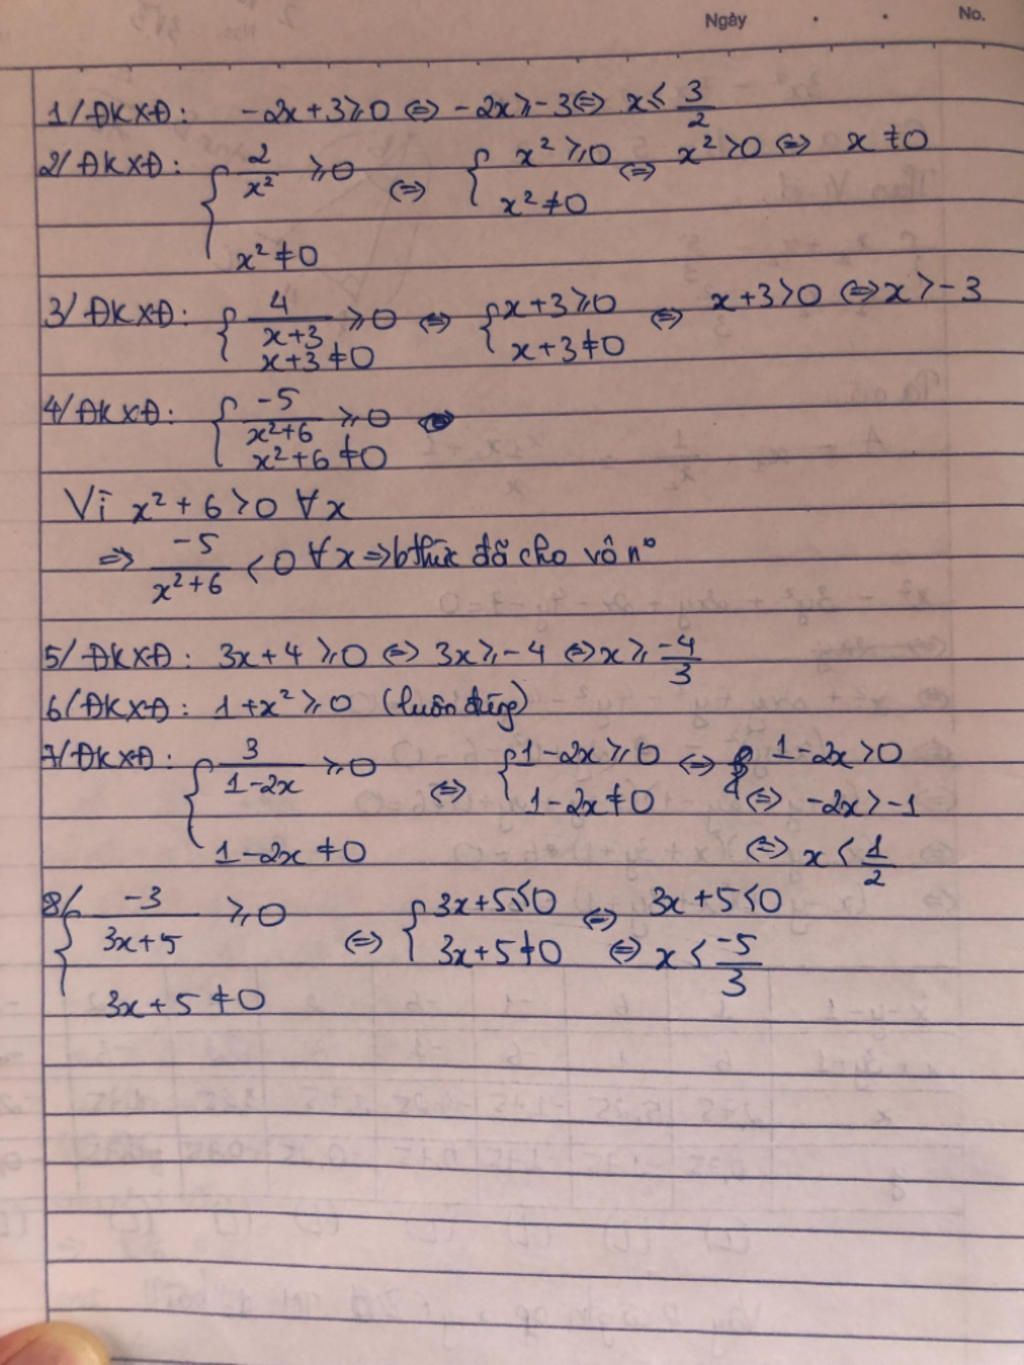 Ngày . . No.
1/ ĐKXĐ: -2x+3≥0 ⇔ -2x≥-3 ⇔ x≤ 3/2
2/ ĐKXĐ: { 2/x² ≥0 ⇔ { x²≥0 ⇔ x²>0 ⇔ x≠0
x²≠0
x²≠0
3/ ĐKXĐ: { 4/(x+3) ≥0 ⇔ { x+3≥0 ⇔ x+3>0 ⇔ x>-3
x+3≠0 x+3≠0
4/ ĐKXĐ: { -5/(x²+6) ≥0
x²+6≠0
Vì x²+6>0 ∀x
⇒ -5/(x²+6) <0 ∀x ⇒ bthức đã cho vô n°
5/ ĐKXĐ: 3x+4≥0 ⇔ 3x≥-4 ⇔ x≥ -4/3
6/ ĐKXĐ: 1+x²≥0 (luôn đúng)
7/ ĐKXĐ: { 3/(1-2x) ≥0 ⇔ { 1-2x≥0 ⇔ 1-2x>0
1-2x≠0 ⇔ -2x>-1
1-2x≠0 ⇔ x< 1/2
8/ { -3/(3x+5) ≥0 ⇔ { 3x+5≤0 ⇔ 3x+5<0
3x+5≠0 ⇔ x< -5/3
3x+5≠0